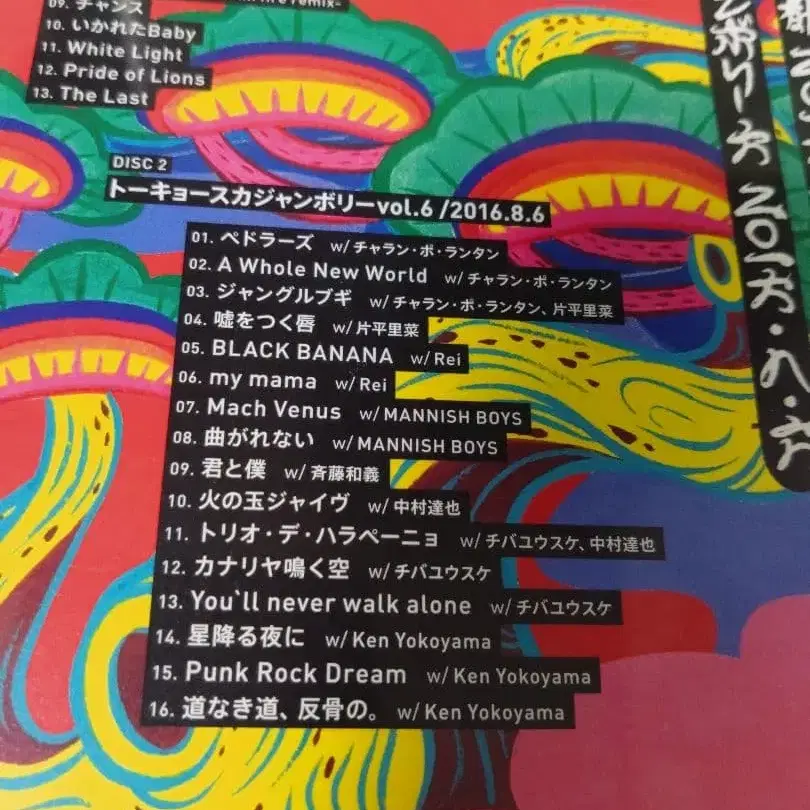 09. チャンス remix-
10. いかれたBaby
11. White Light
12. Pride of Lions
13. The Last
DISC 2
トーキョースカジャンボリーvol.6 /2016.8.6
01. ペドラーズ w/ チャラン・ポ・ランタン
02. A Whole New World w/ チャラン・ポ・ランタン
03. ジャングルブギ w/ チャラン・ポ・ランタン、片平里菜
04. 嘘をつく唇 w/ 片平里菜
05. BLACK BANANA w/ Rei
06. my mama w/ Rei
07. Mach Venus w/ MANNISH BOYS
08. 曲がれない w/ MANNISH BOYS
09. 君と僕 w/ 斉藤和義
10. 火の玉ジャイヴ w/ 中村達也
11. トリオ・デ・ハラペーニョ w/ チバユウスケ、中村達也
12. カナリヤ鳴く空 w/ チバユウスケ
13. You`ll never walk alone w/ チバユウスケ
14. 星降る夜に w/ Ken Yokoyama
15. Punk Rock Dream w/ Ken Yokoyama
16. 道なき道、反骨の。 w/ Ken Yokoyama
ンボリー六 二〇一六・八・六